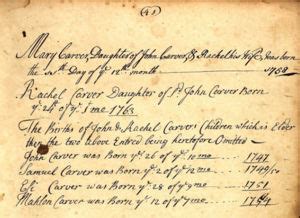 (4)
Mary Carver, Daughter of John Carver, & Rachel his Wife, was born
the Day of ye 12th month 1758
Rachel Carver Daughter of sd John Carver Born
ye 24 of ye 1 mo 1763
The Births of John & Rachel Carvers Children which is Elder
then the two above Entred being heretofore Omitted
John Carver was Born ye 26 of ye 10 mo 1747
Samuel Carver was Born ye 2 of ye 12 mo 1749/50
Carver was Born ye 28 of ye 9 mo 1751
Mahlon Carver was Born ye 12 of ye 7 mo 1754